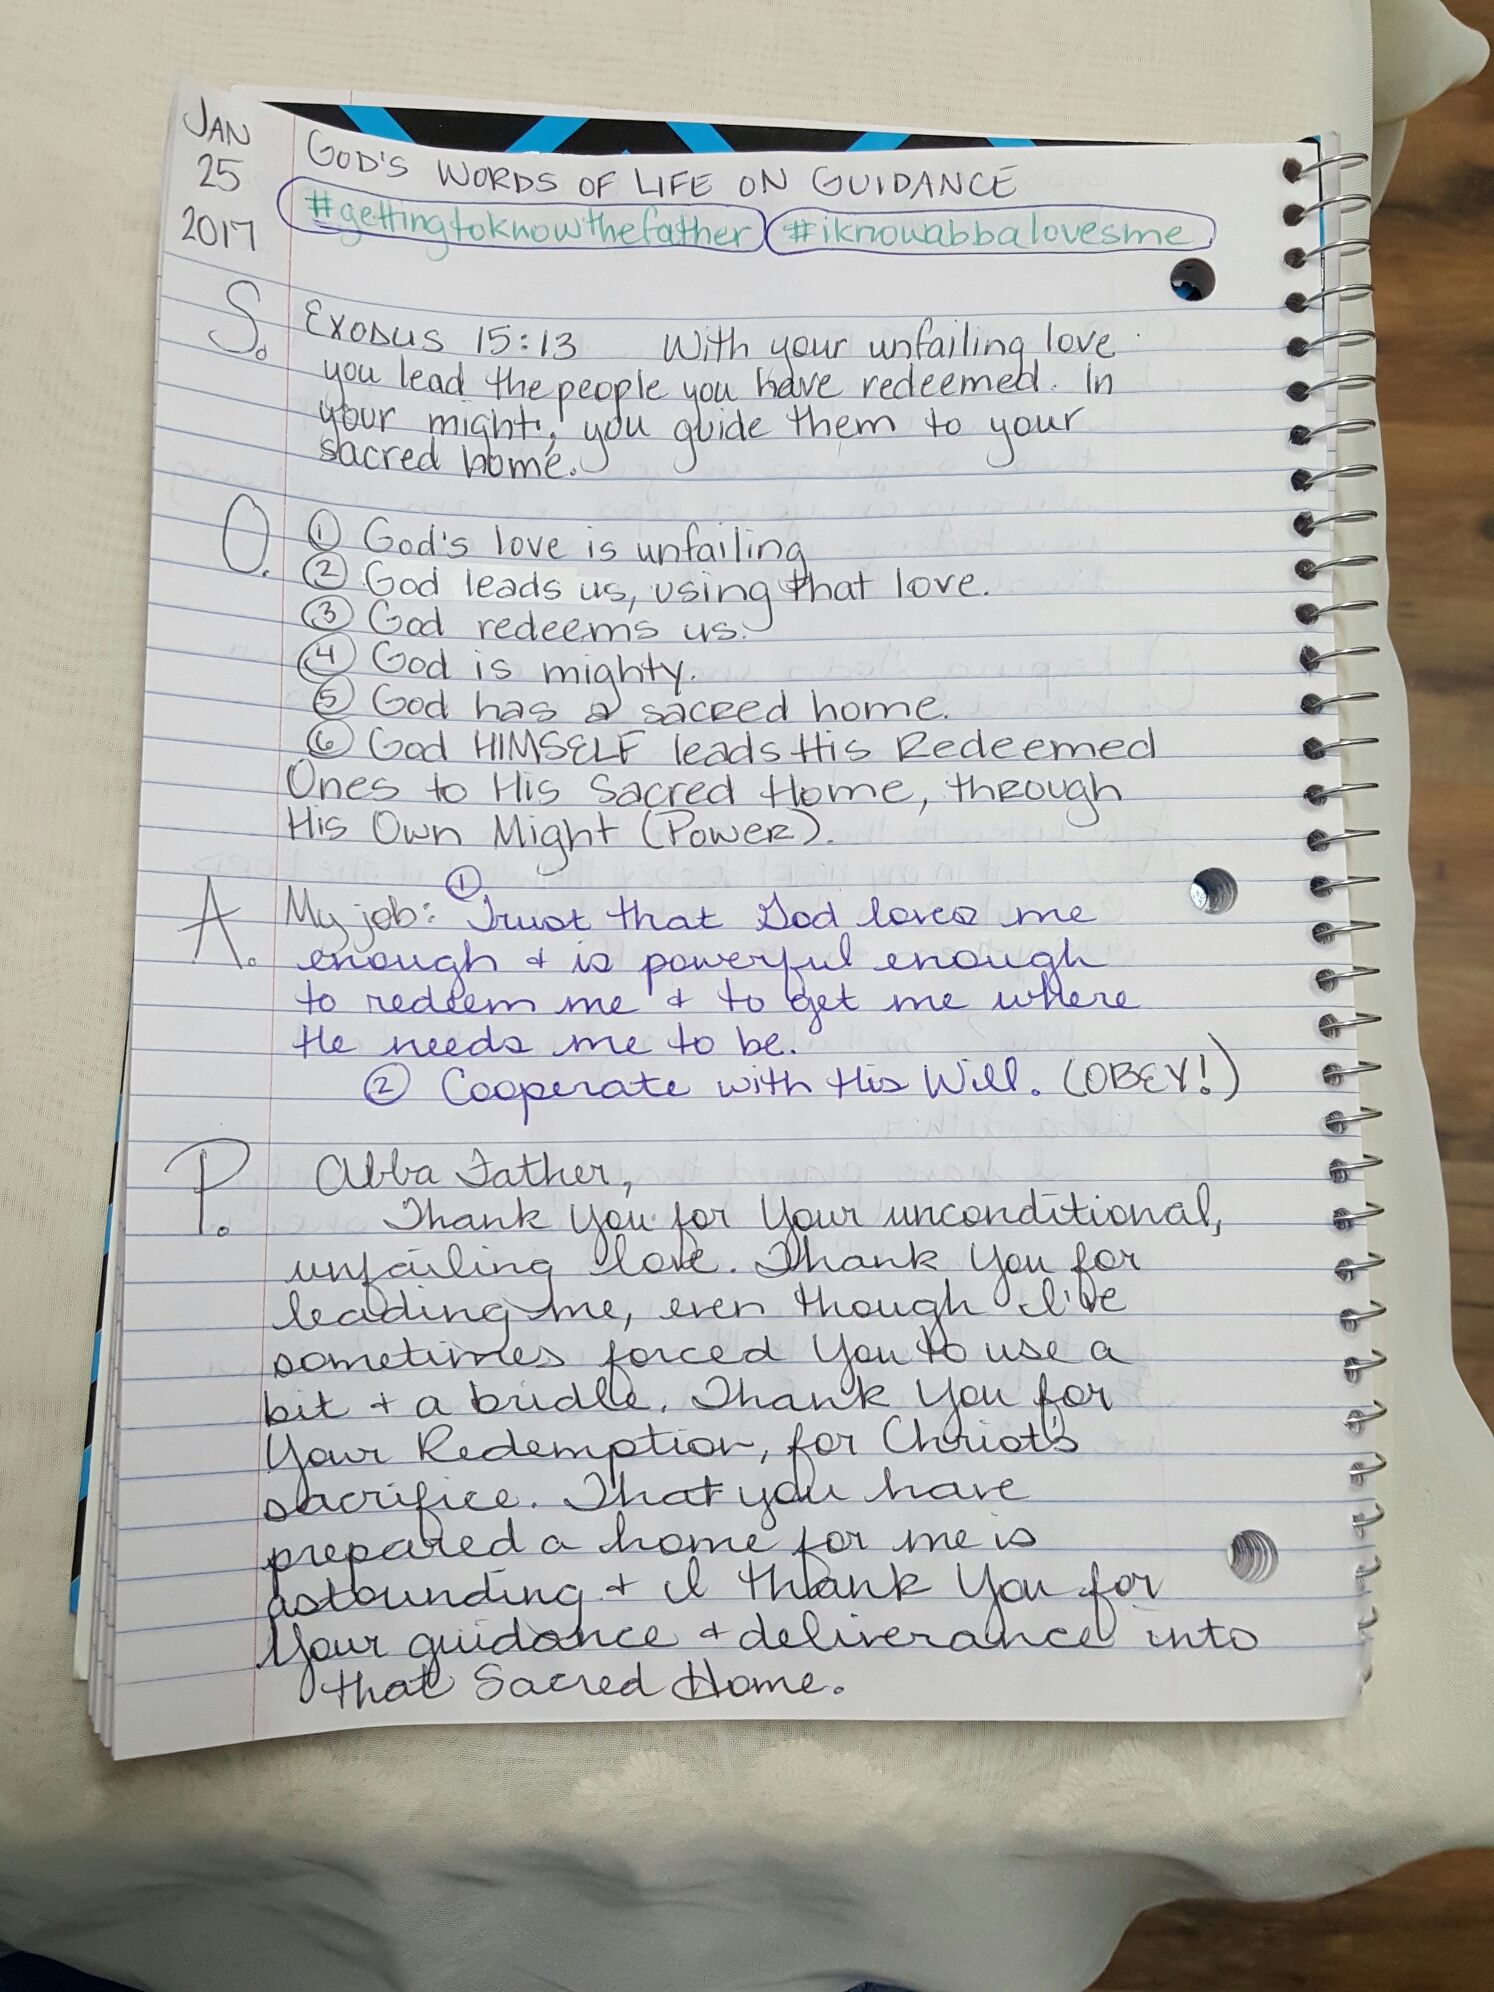 JAN
25
2017
GOD'S WORDS OF LIFE ON GUIDANCE
#gettingtoknowthefather #iknowabbalovesme
S. Exodus 15:13 With your unfailing love
you lead the people you have redeemed. In
your might, you guide them to your
sacred home.
O. ① God's love is unfailing
② God leads us, using that love.
③ God redeems us.
④ God is mighty.
⑤ God has a sacred home.
⑥ God HIMSELF leads His Redeemed
Ones to His Sacred Home, through
His Own Might (Power).
A. My job: ① Trust that God loves me
enough + is powerful enough
to redeem me + to get me where
He needs me to be.
② Cooperate with His Will. (OBEY!)
P. Abba Father,
Thank You for Your unconditional,
unfailing love. Thank You for
leading me, even though I've
sometimes forced You to use a
bit + a bridle. Thank You for
Your Redemption, for Christ's
sacrifice. That you have
prepared a home for me is
astounding + I thank You for
Your guidance + deliverance into
that Sacred Home.